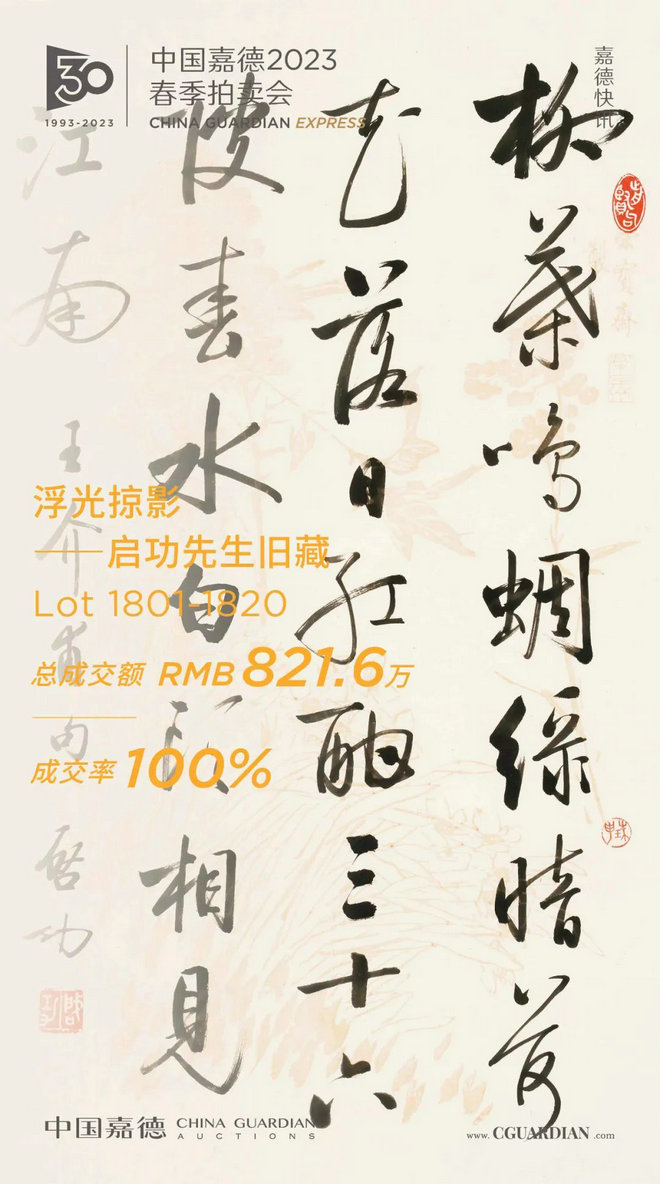 30
1993-2023
中国嘉德2023
春季拍卖会
CHINA GUARDIAN EXPRESS
嘉德快讯
柳葉鳴蜩綠暗荷
花落日紅酣三十六
陂春水白頭相見
江南
王介甫句 啓功
浮光掠影
——启功先生旧藏
Lot 1801-1820
总成交额 RMB 821.6万
成交率 100%
中国嘉德 CHINA GUARDIAN
AUCTIONS
www.CGUARDIAN.com